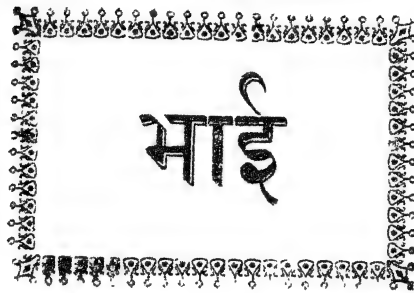 भाई